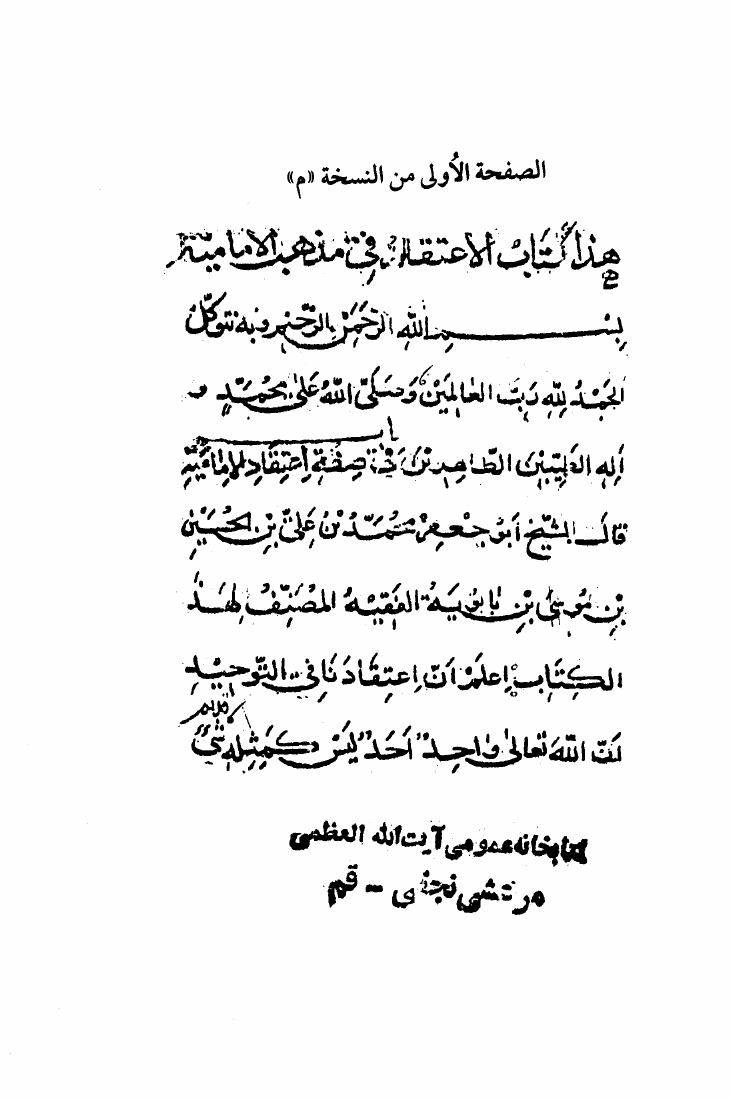 الصفحة الأولى من النسخة «م»
هذا كتابُ الاعتقاد في مذهب الامامیّة
بِسْــمِ اللّٰهِ الرَّحْمَنِ الرَّحِيمِ وبه نتوكّل
الحَمْدُ لِلّٰهِ رَبِّ العٰالَمِينَ وَصَلَّى اللّٰهُ عَلىٰ مُحَمَّدٍ و
باب
اٰلِهِ الطَّيِّبِينَ الطّاهِرِينَ فى صِفَةِ اِعتِقادِ الاِمامِيَّةِ
قالَ الشَّيخ اَبُو جَعفَرٍ مُحَمَّدُ بْنُ عَلِىِّ بْنِ الحُسَيْنِ
بْنِ مُوسىٰ بْنِ بابَوَيهِ الفَقِيهُ المُصَنِّفُ لِهٰذَا
الكِتابِ اِعلَمْ اَنَّ اِعتِقادَنا فِى التَّوحِيدِ
اَنَّ اللّٰهَ تَعالىٰ واحِدٌ اَحَدٌ لَيْسَ كَمِثلِهِ شَىءٌ
کتابخانه عمومی آیت الله العظمی
مرعشی نجفی - قم